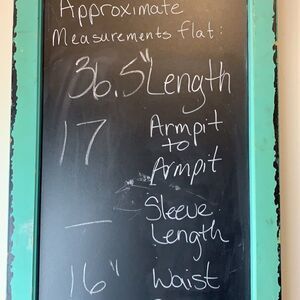 Approximate
Measurements flat:
36.5" Length
17 Armpit
to
Armpit
— Sleeve
Length
16" Waist